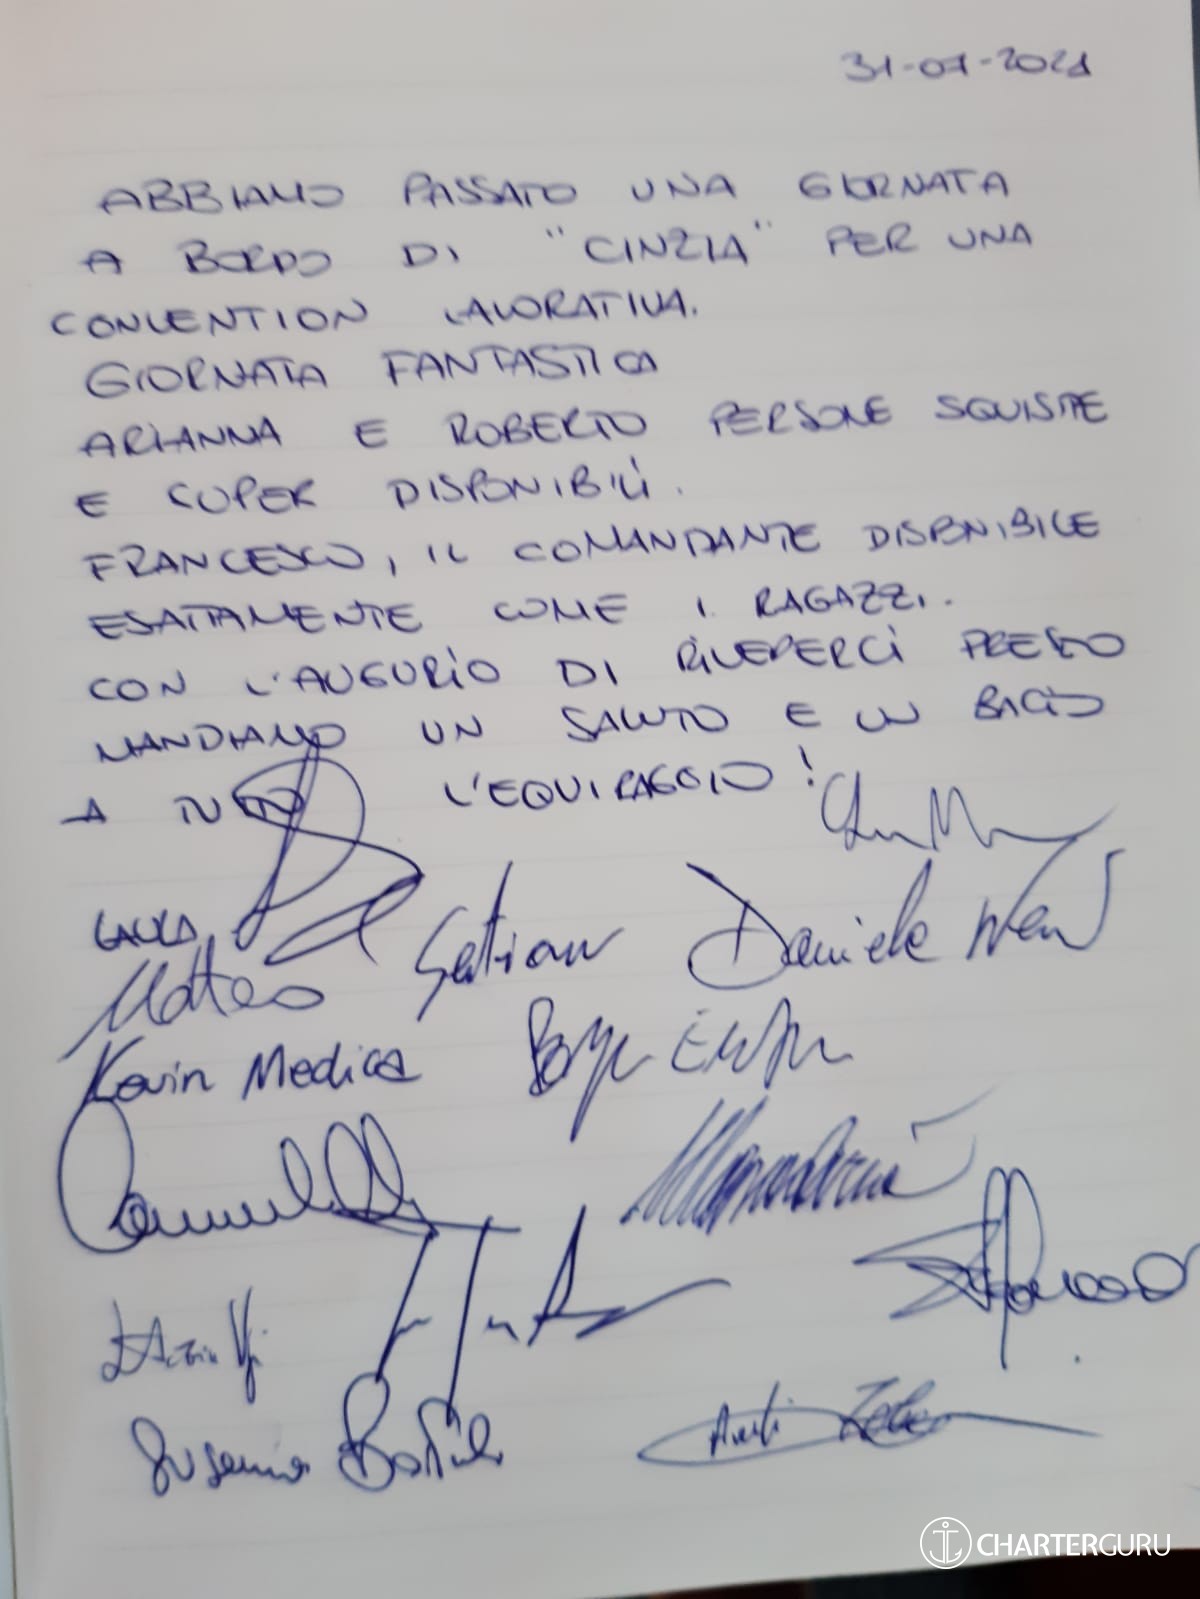 31-07-2021
ABBIAMO PASSATO UNA GIORNATA
A BORDO DI "CINZIA" PER UNA
CONVENTION LAVORATIVA.
GIORNATA FANTASTICA
ARIANNA E ROBERTO PERSONE SQUISITE
E SUPER DISPONIBILI.
FRANCESCO, IL COMANDANTE DISPONIBILE
ESATTAMENTE COME I RAGAZZI.
CON L'AUGURIO DI RIVEDERCI PRESTO
MANDIAMO UN SALUTO E UN BACIO
A TUTTO L'EQUIPAGGIO!
LAURA
Matteo Daniele
Kevin Medica
CHARTERGURU